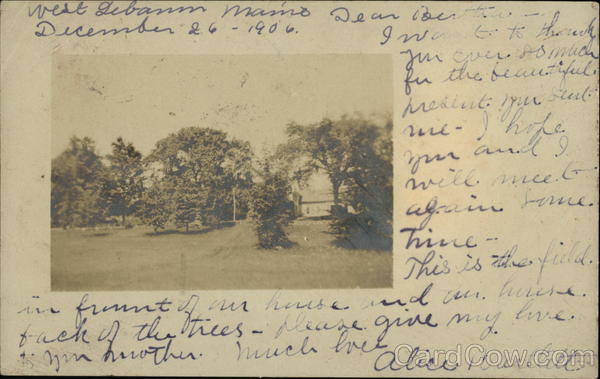 West Lebanon Maine
December 26 - 1906.
Dear Bertha -
I want to thank
you ever so much
for the beautiful
present you sent
me - I hope
you and I
will meet
again some
time -
This is the field
in frount of our house and our house
back of the trees - please give my love
to your mother. Much love
Alice
CardCow.com